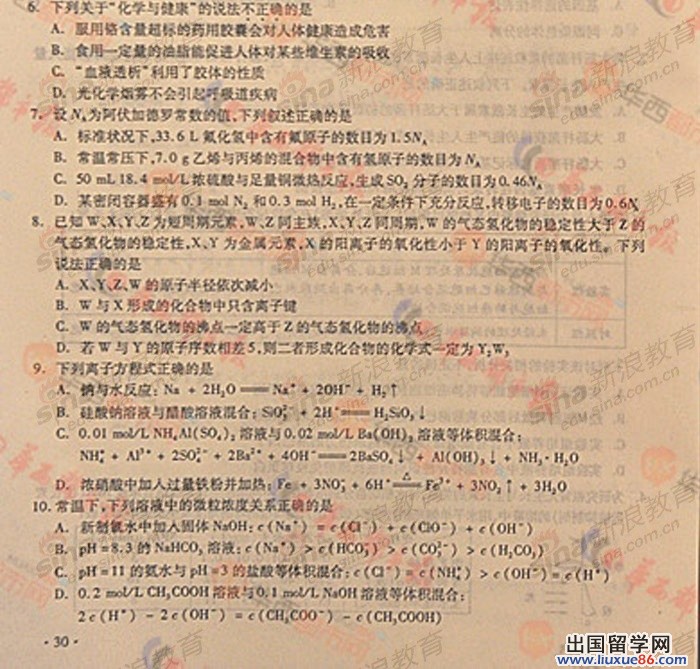 6. 下列关于“化学与健康”的说法不正确的是
A. 服用铬含量超标的药用胶囊会对人体健康造成危害
B. 食用一定量的油脂能促进人体对某些维生素的吸收
C. “血液透析”利用了胶体的性质
D. 光化学烟雾不会引起呼吸道疾病
7. 设NA为阿伏加德罗常数的值,下列叙述正确的是
A. 标准状况下,33.6 L 氟化氢中含有氟原子的数目为1.5NA
B. 常温常压下,7.0 g 乙烯与丙烯的混合物中含有氢原子的数目为NA
C. 50 mL 18.4 mol/L浓硫酸与足量铜微热反应,生成SO2 分子的数目为0.46NA
D. 某密闭容器盛有0.1 mol N2 和0.3 mol H2,在一定条件下充分反应,转移电子的数目为0.6NA
8. 已知W、X、Y、Z为短周期元素,W、Z同主族,X、Y、Z同周期,W的气态氢化物的稳定性大于Z的
气态氢化物的稳定性,X、Y为金属元素,X的阳离子的氧化性小于Y的阳离子的氧化性。下列
说法正确的是
A. X、Y、Z、W的原子半径依次减小
B. W与X形成的化合物中只含离子键
C. W的气态氢化物的沸点一定高于Z的气态氢化物的沸点
D. 若W与Y的原子序数相差5,则二者形成化合物的化学式一定为Y2W3
9. 下列离子方程式正确的是
A. 钠与水反应: Na + 2H2O ═ Na⁺ + 2OH⁻ + H2↑
B. 硅酸钠溶液与醋酸溶液混合: SiO3²⁻ + 2H⁺ ═ H2SiO3↓
C. 0.01 mol/L NH4Al(SO4)2 溶液与0.02 mol/L Ba(OH)2 溶液等体积混合:
NH4⁺ + Al³⁺ + 2SO4²⁻ + 2Ba²⁺ + 4OH⁻ ═ 2BaSO4↓ + Al(OH)3↓ + NH3·H2O
D. 浓硝酸中加入过量铁粉并加热: Fe + 3NO3⁻ + 6H⁺ =△= Fe³⁺ + 3NO2↑ + 3H2O
10. 常温下,下列溶液中的微粒浓度关系正确的是
A. 新制氯水中加入固体NaOH: c(Na⁺) = c(Cl⁻) + c(ClO⁻) + c(OH⁻)
B. pH=8.3的NaHCO3 溶液: c(Na⁺) > c(HCO3⁻) > c(CO3²⁻) > c(H2CO3)
C. pH=11的氨水与pH=3的盐酸等体积混合: c(Cl⁻) = c(NH4⁺) > c(OH⁻) = c(H⁺)
D. 0.2 mol/L CH3COOH溶液与0.1 mol/L NaOH溶液等体积混合:
2c(H⁺) - 2c(OH⁻) = c(CH3COO⁻) - c(CH3COOH)
·30·
sina新浪教育
edu.sina.com.cn
出国留学网
www.liuxue86.com